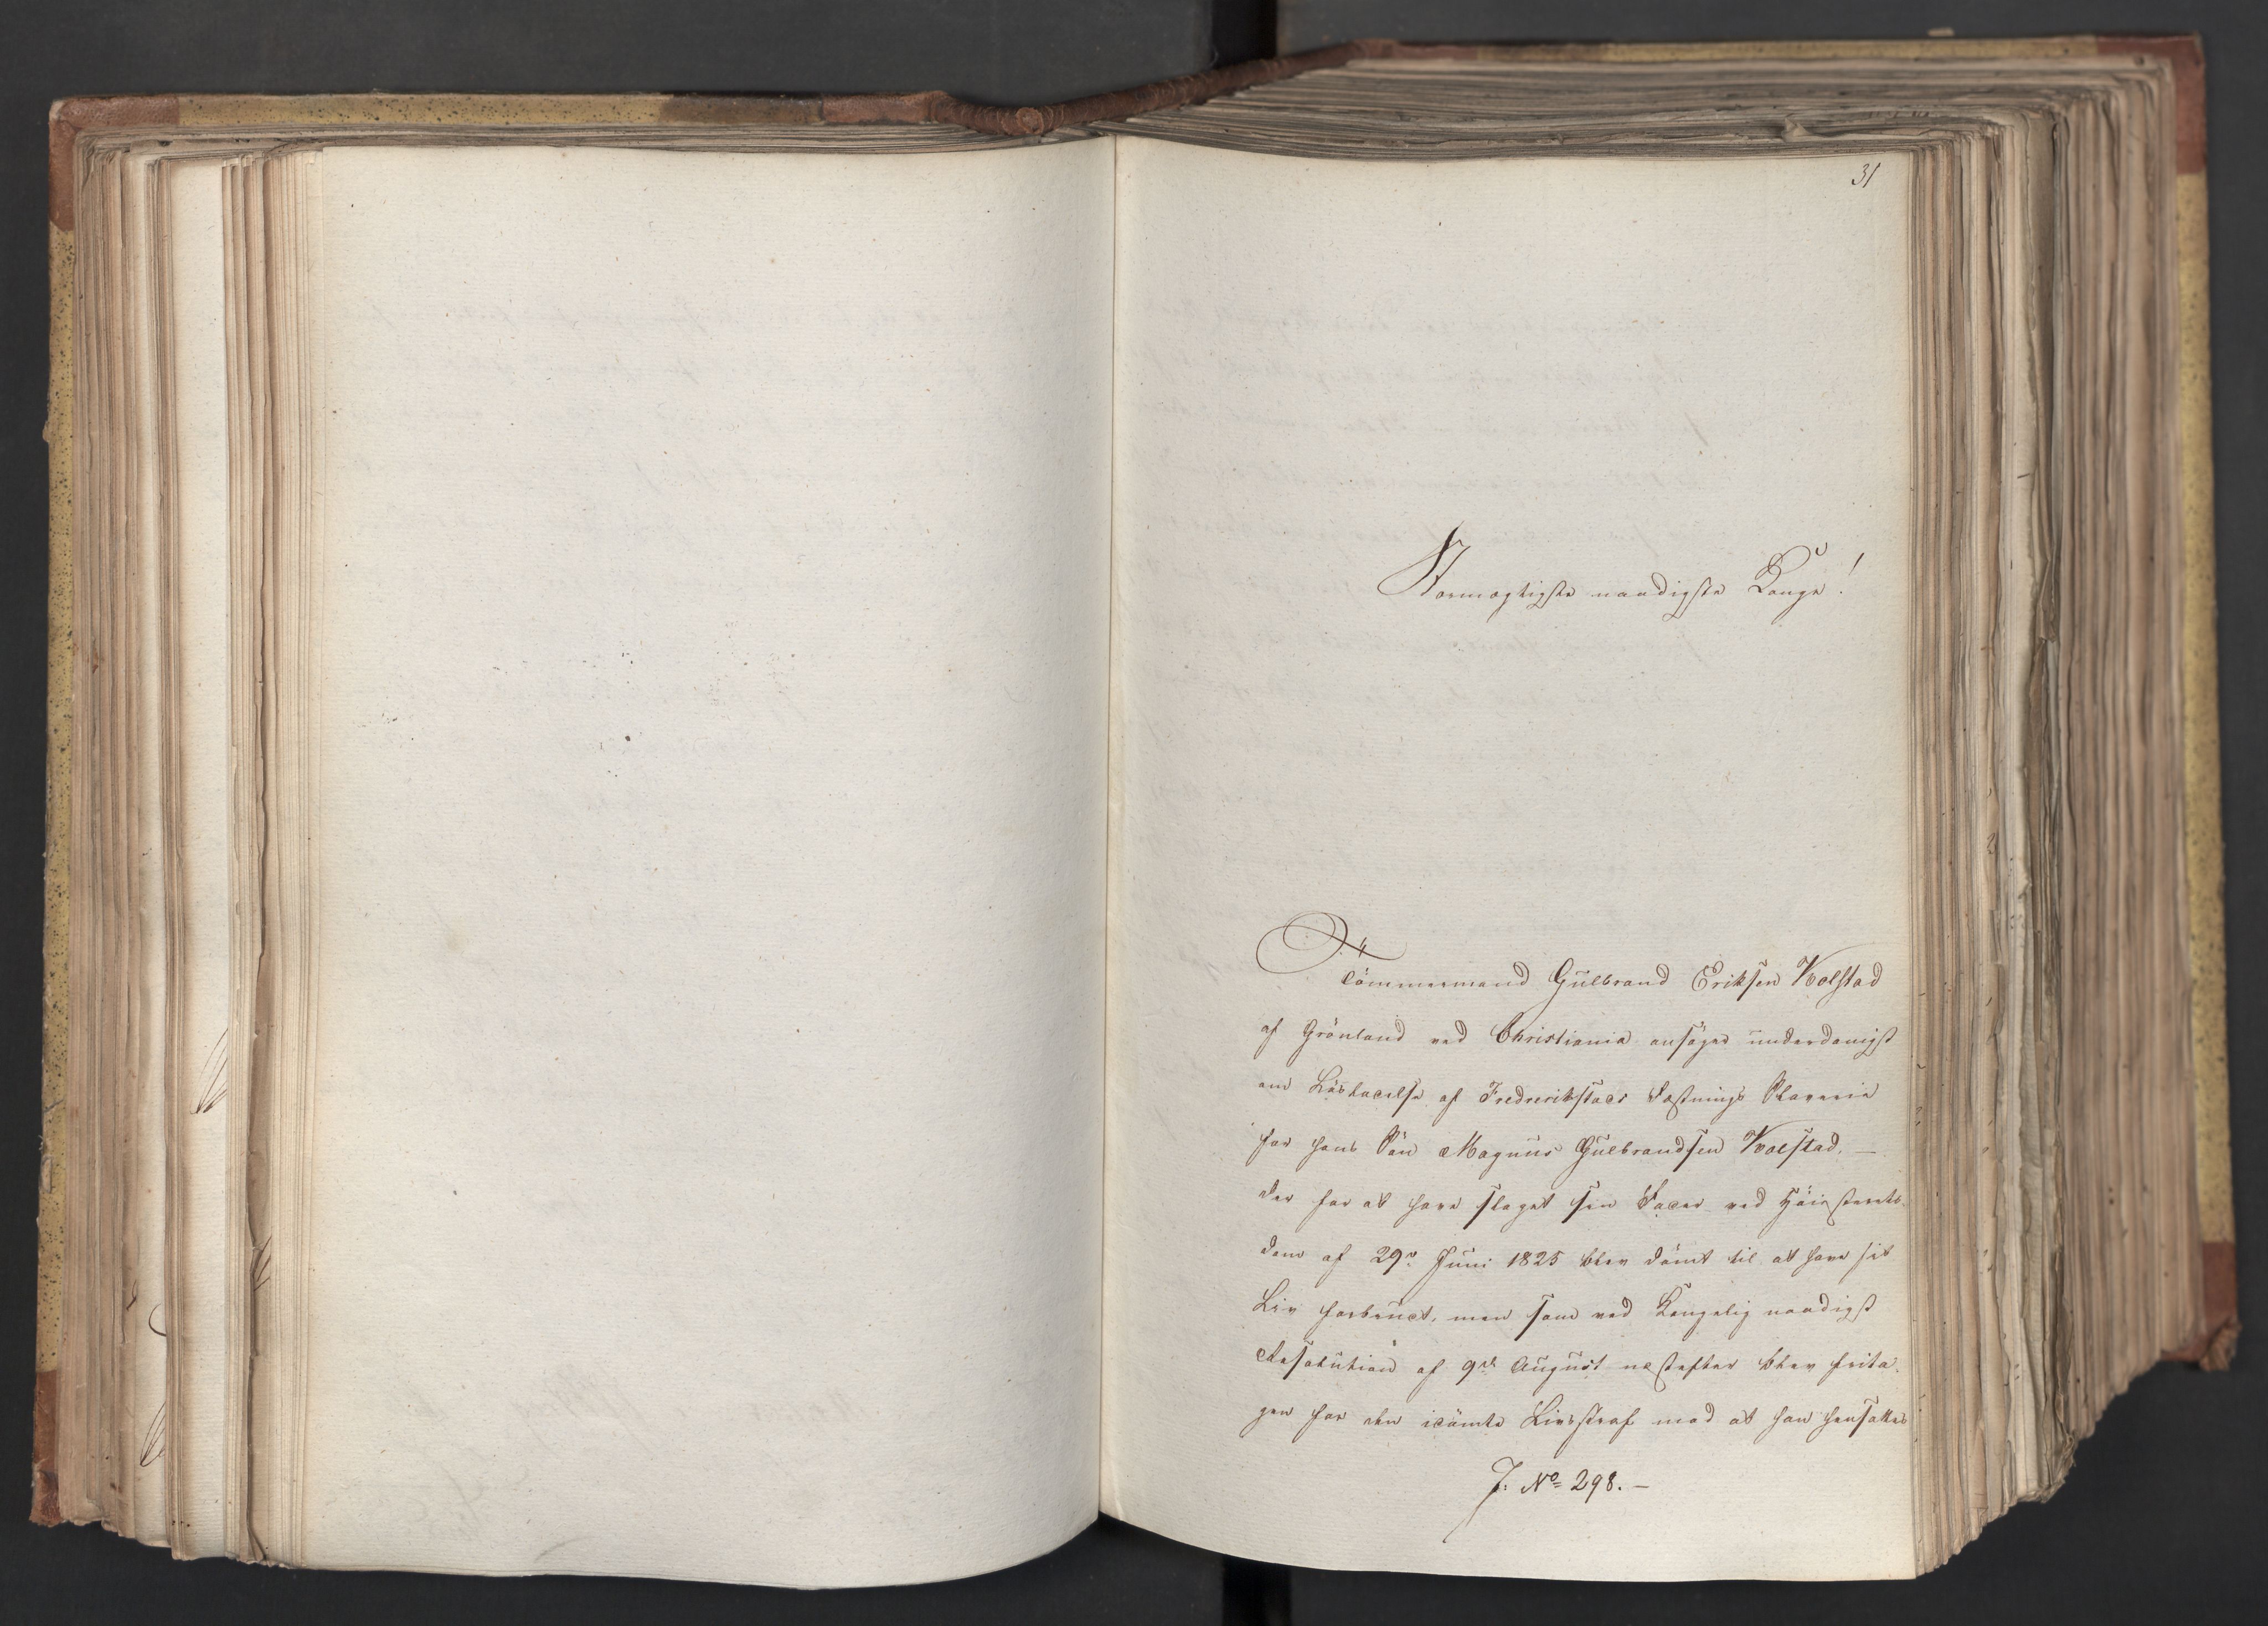 31
Stormægtigste naadigste Konge!
Tömmermand Gulbrand Eriksen Kolstad
af Grönland ved Christiania ansöger underdanigst
om Lösladelse af Fredrerikstads Fæstnings Slaverie
for hans Sön Magnus Gulbrandsen Kolstad. —
der for at have slaget sin Fader ved Höiesterets-
dom af 29de Juni 1825 blev dömt til at have sit
Liv forbrudt, men som ved Kongelig naadigst
Resolution af 9de August næstefter blev frita-
gen for den idömte Livsstraf mod at han hensattes
J: No 298. —